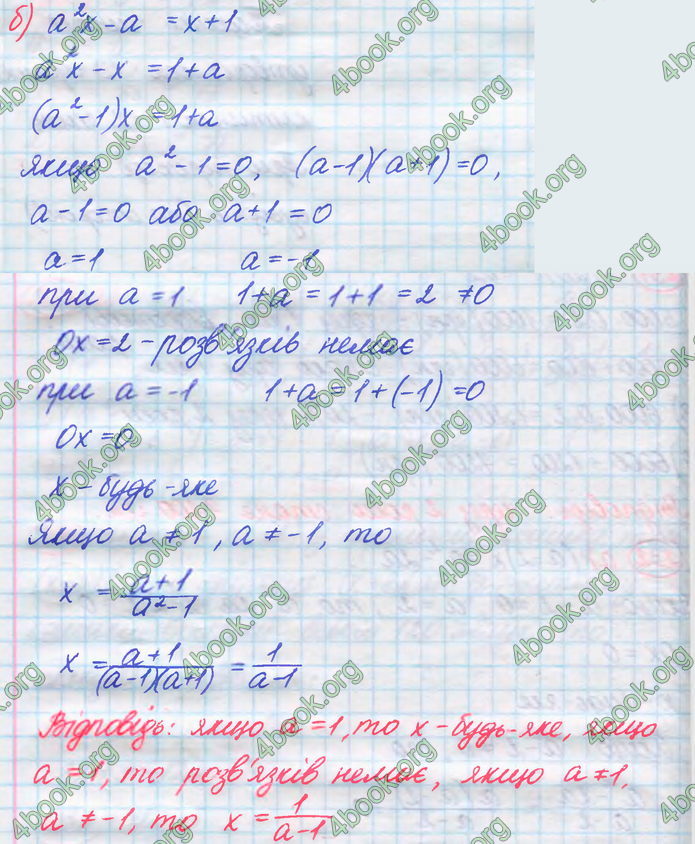 б) a²x - a = x + 1
a²x - x = 1 + a
(a² - 1)x = 1 + a
якщо a² - 1 = 0, (a - 1)(a + 1) = 0,
a - 1 = 0 або a + 1 = 0
a = 1 a = -1
при a = 1 1 + a = 1 + 1 = 2 ≠ 0
0x = 2 - розв'язків немає
при a = -1 1 + a = 1 + (-1) = 0
0x = 0
x - будь-яке
Якщо a ≠ 1, a ≠ -1, то
x = (a + 1)/(a² - 1)
x = (a + 1)/((a - 1)(a + 1)) = 1/(a - 1)
Відповідь: якщо a = 1, то x - будь-яке, якщо
a = 1, то розв'язків немає, якщо a ≠ 1,
a ≠ -1, то x = 1/(a - 1)
4book.org